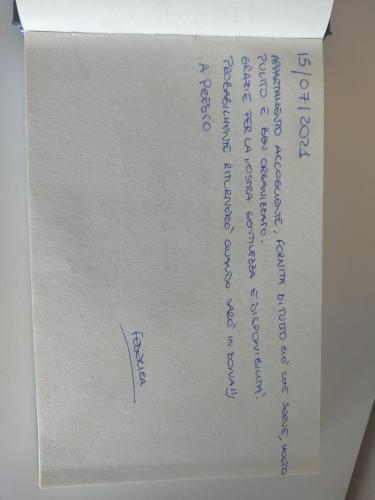 15/07/2021
APPARTAMENTO ACCOGLIENTE, FORNITA DI TUTTO CIÒ CHE SERVE, MOLTO
PULITO E BEN ORGANIZZATO.
GRAZIE PER LA VOSTRA GENTILEZZA E DISPONIBILITÀ.
PROBABILMENTE RITORNERÒ QUANDO SARÒ IN ZONA!!
A PRESTO
FEDERICA